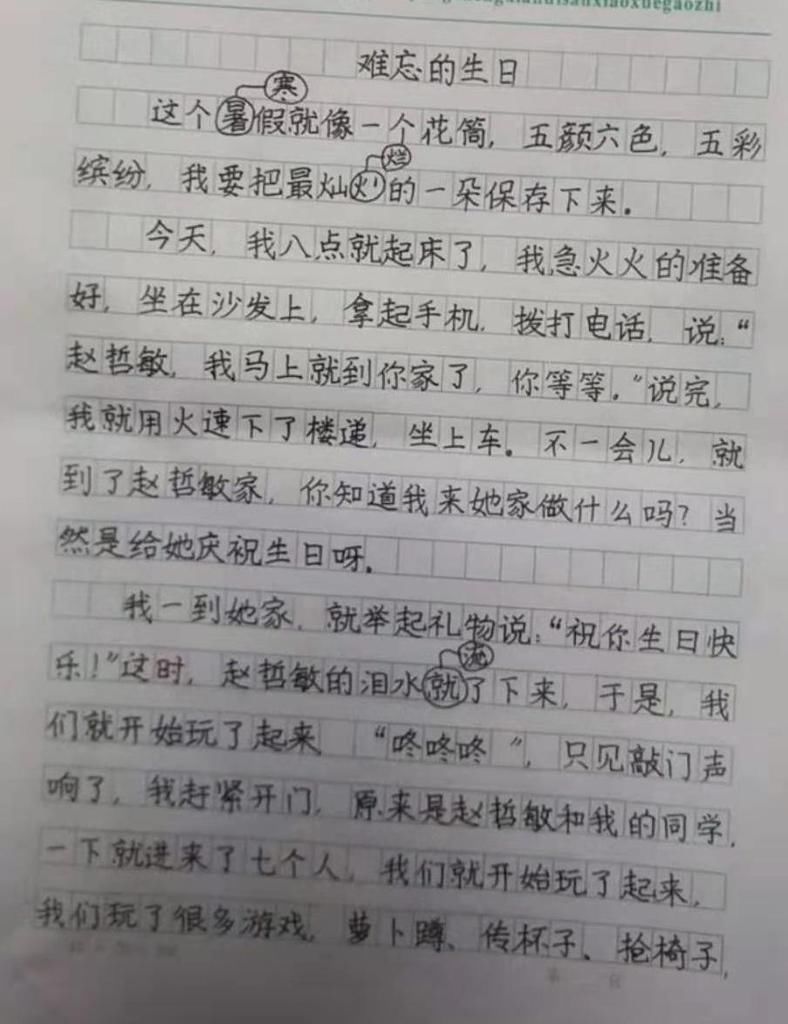 难忘的生日
寒
这个暑假就像一个花筒，五颜六色，五彩
烂
缤纷，我要把最灿灯的一朵保存下来。
今天，我八点就起床了，我急火火的准备
好，坐在沙发上，拿起手机，拨打电话，说：“
赵哲敏，我马上就到你家了，你等等。”说完，
我就用火速下了楼递，坐上车。不一会儿，就
到了赵哲敏家，你知道我来她家做什么吗？当
然是给她庆祝生日呀。
我一到她家，就举起礼物说：“祝你生日快
流
乐！”这时，赵哲敏的泪水就了下来，于是，我
们就开始玩了起来 “咚咚咚”，只见敲门声
响了，我赶紧开门，原来是赵哲敏和我的同学，
一下就进来了七个人，我们就开始玩了起来，
我们玩了很多游戏，萝卜蹲、传杯子、抢椅子，